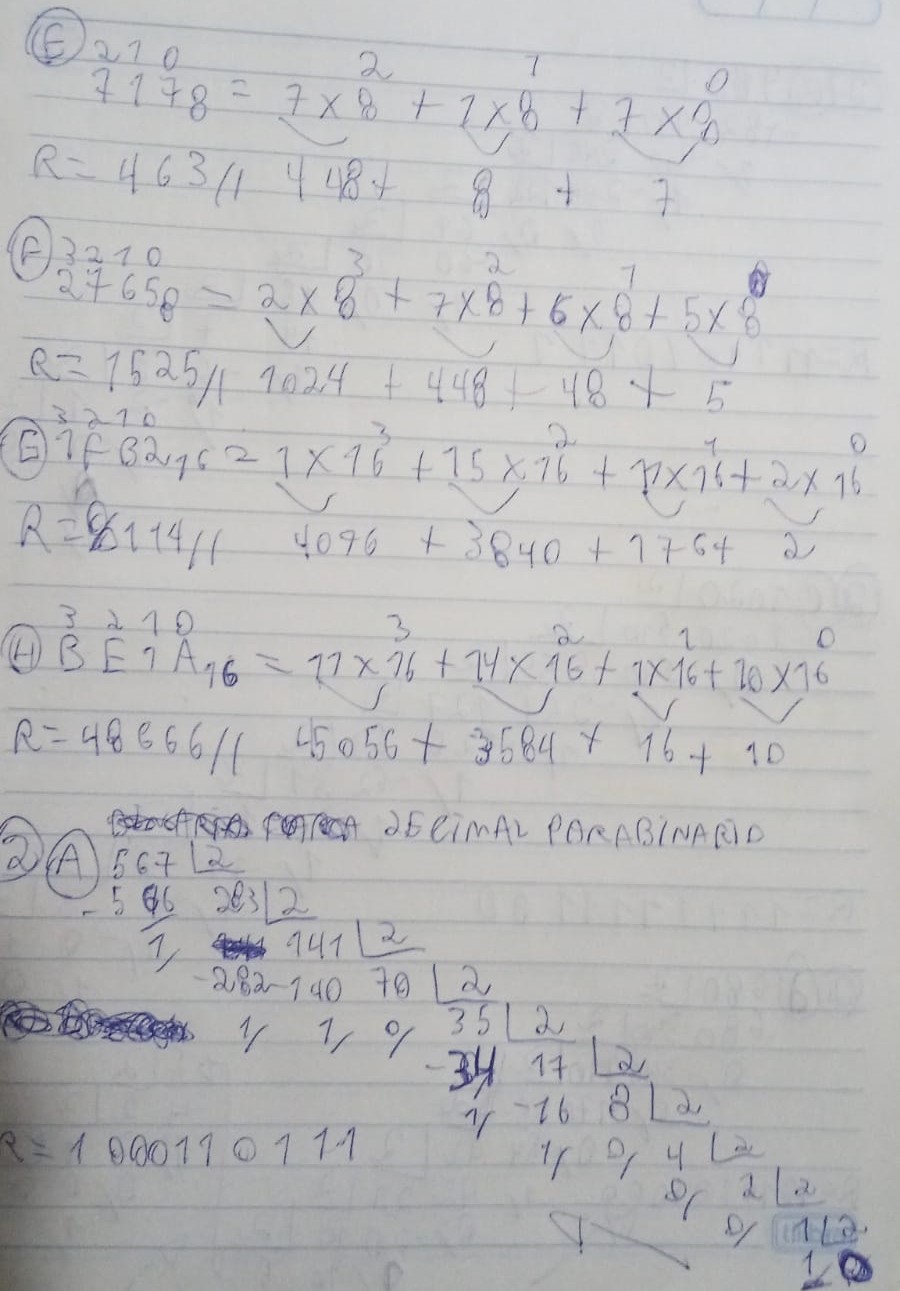 E 2 1 0
717₈ = 7×8² + 1×8¹ + 7×8⁰
R = 463// 448 + 8 + 7
F 3 2 1 0
2765₈ = 2×8³ + 7×8² + 6×8¹ + 5×8⁰
R = 1525// 1024 + 448 + 48 + 5
3 2 1 0
G 1FB2₁₆ = 1×16³ + 15×16² + 11×16¹ + 2×16⁰
R = 8114// 4096 + 3840 + 176 + 2
3 2 1 0
H BE1A₁₆ = 11×16³ + 14×16² + 1×16¹ + 10×16⁰
R = 48666// 45056 + 3584 + 16 + 10
DECIMAL PARA BINARIO
2 A 567 2
-566 283 2
1, 141 2
-282 -140 70 2
1, 1, 0, 35 2
-34 17 2
1, -16 8 2
R = 1000110111 1, 0, 4 2
0, 2 2
0, 1 2
1 0